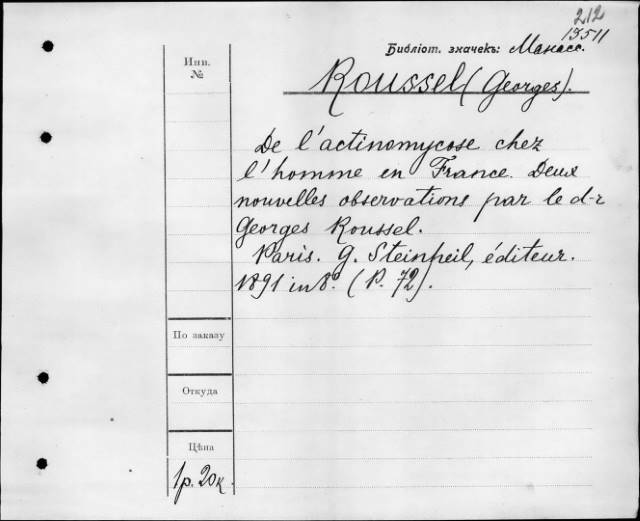 212
13511
Библіот. значекъ: Манасс.
Инв.
№
Roussel (Georges).
De l'actinomycose chez
l'homme en France. Deux
nouvelles observations par le d-r
Georges Roussel.
Paris. G. Steinheil, éditeur.
1891 in 8°. (P. 72).
По заказу
Откуда
Цѣна
1р. 20к.